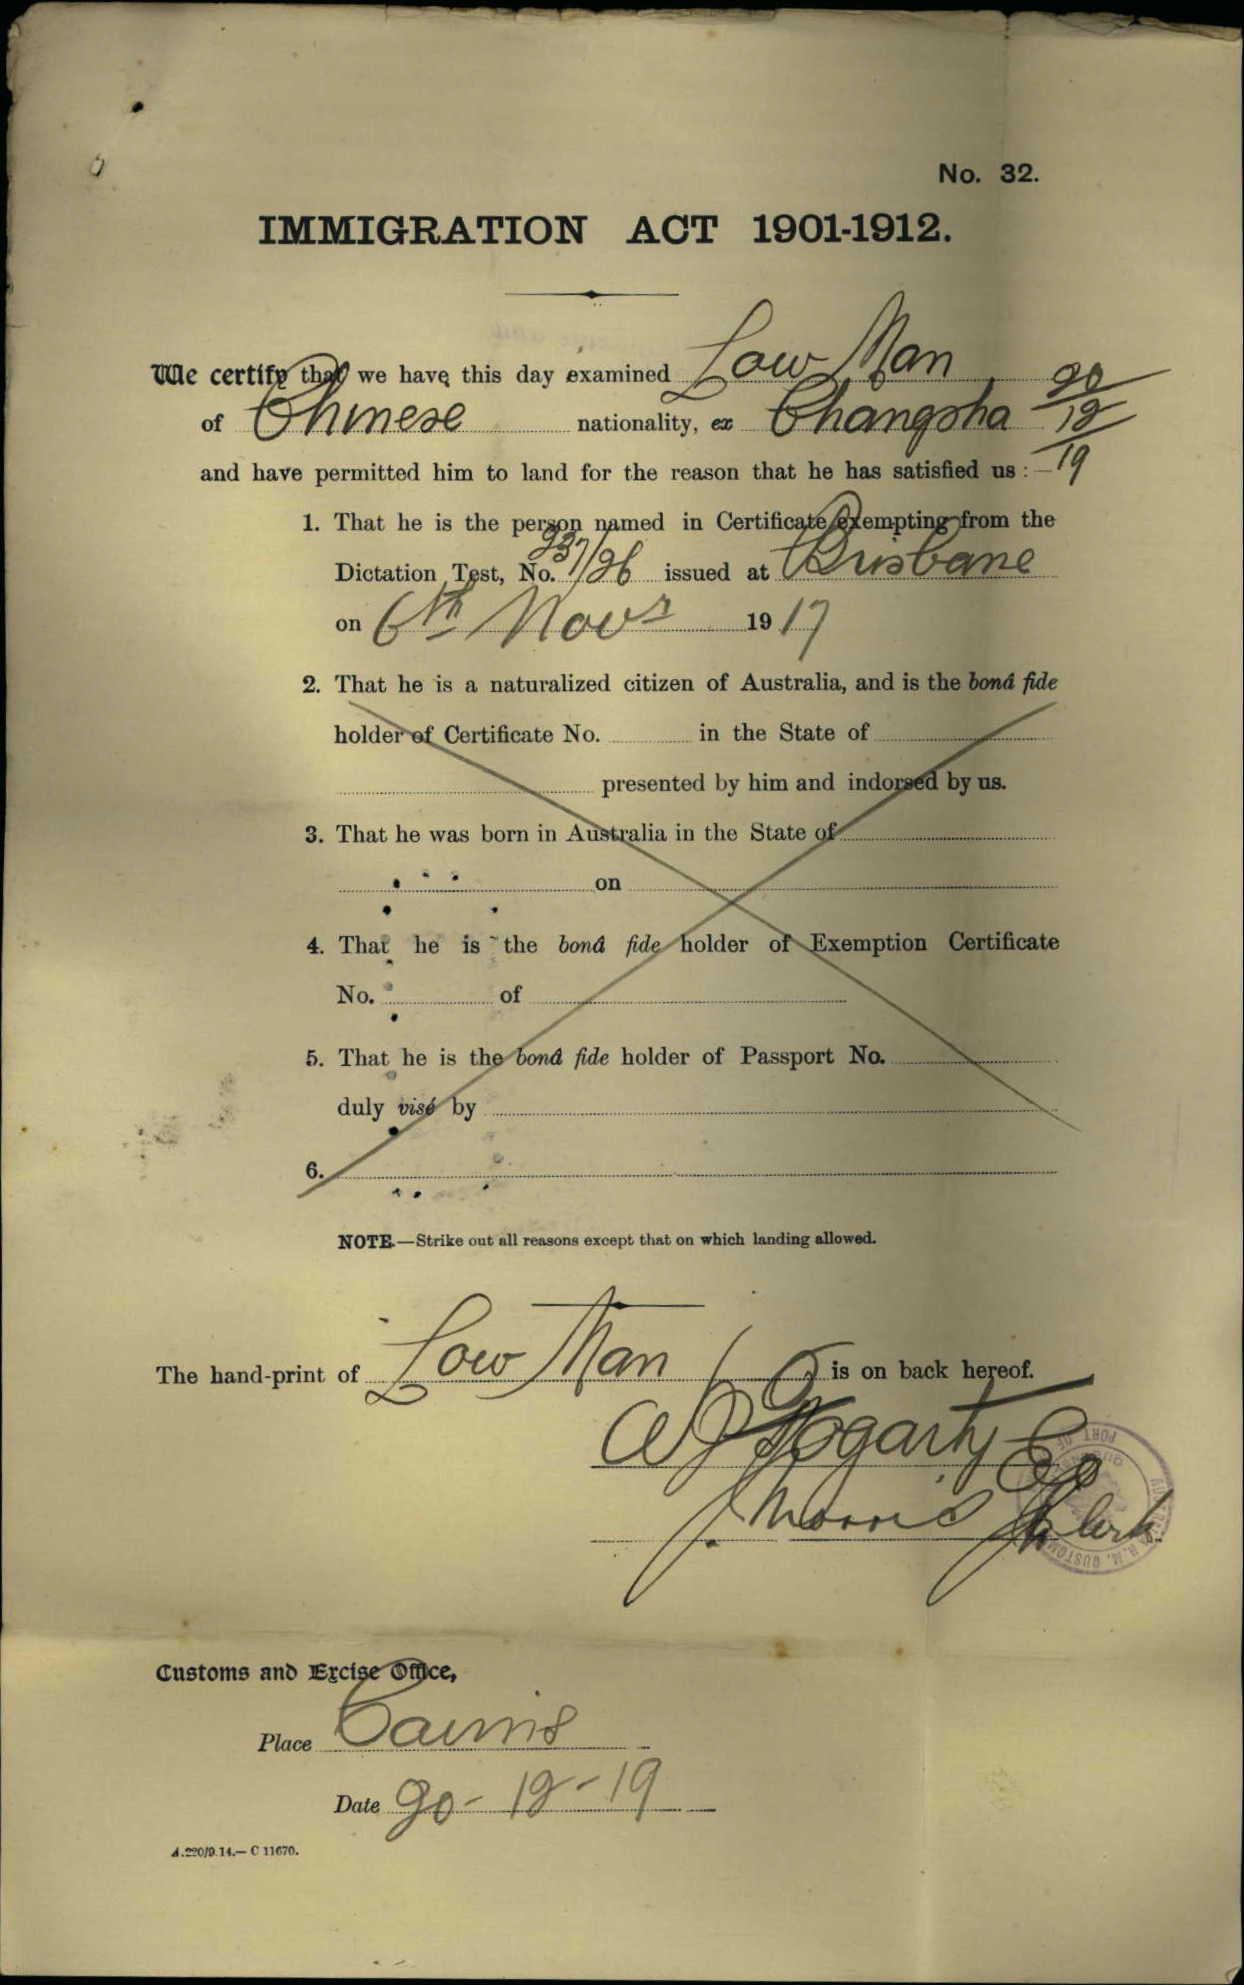 No. 32.
IMMIGRATION ACT 1901-1912.
We certify that we have this day examined Low Man
of Chinese nationality, ex Changsha 20/12/19
and have permitted him to land for the reason that he has satisfied us :—
1. That he is the person named in Certificate exempting from the
Dictation Test, No. 237/26 issued at Brisbane
on 6th Novr 1917
2. That he is a naturalized citizen of Australia, and is the bonâ fide
holder of Certificate No. in the State of
presented by him and indorsed by us.
3. That he was born in Australia in the State of
on
4. That he is the bonâ fide holder of Exemption Certificate
No. of
5. That he is the bonâ fide holder of Passport No.
duly visé by
6.
NOTE.—Strike out all reasons except that on which landing allowed.
The hand-print of Low Man is on back hereof.
Fogarty
J. Morris Clerk
PORT OF
H.M. CUSTOMS
Customs and Excise Office,
Place Cairns
Date 20-12-19
A.220/9.14.— C 11670.